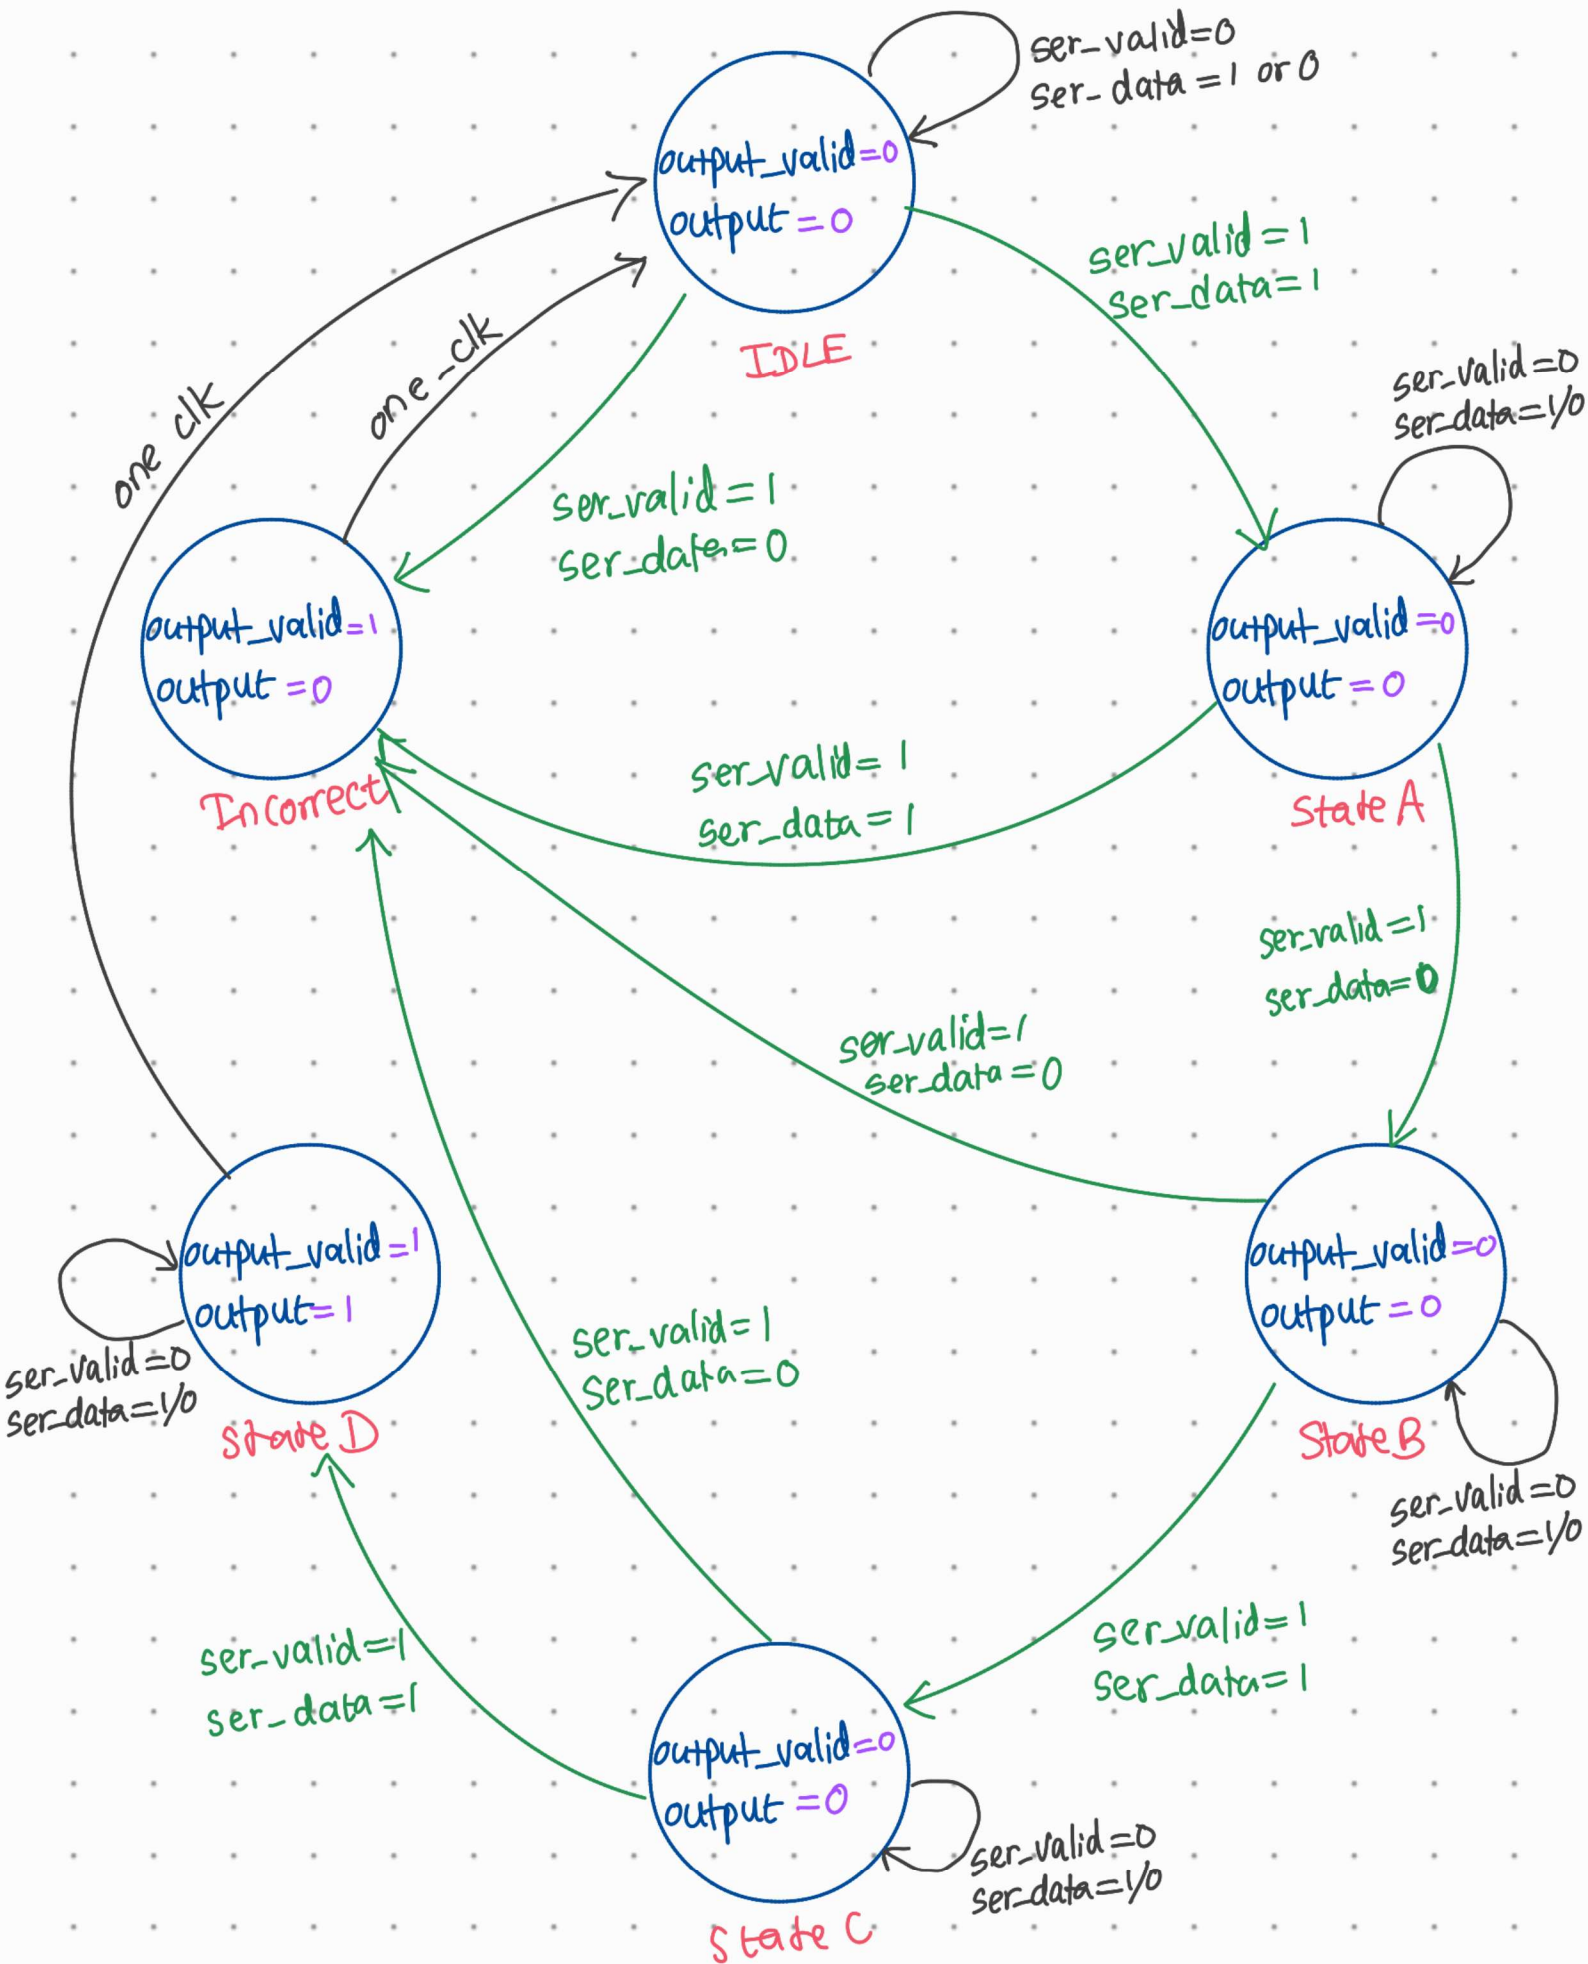 ser_valid=0
ser_data =1 or 0
output_valid=0
output =0
IDLE
ser_valid = 1
ser_data=1
one clk
one_clk
ser_valid=0
ser_data=1/0
ser_valid = 1
ser_data=0
output_valid=1
output =0
Incorrect
output_valid=0
output = 0
State A
ser_valid= 1
ser_data = 1
ser_valid=1
ser_data=0
ser_valid=1
ser_data=0
output_valid=1
output=1
ser_valid=0
ser_data=1/0
State D
output_valid=0
output = 0
State B
ser_valid=0
ser_data=1/0
ser_valid=1
ser_data=0
ser_valid=1
ser_data=1
ser_valid=1
ser_data=1
output_valid=0
output =0
ser_valid=0
ser_data=1/0
State C